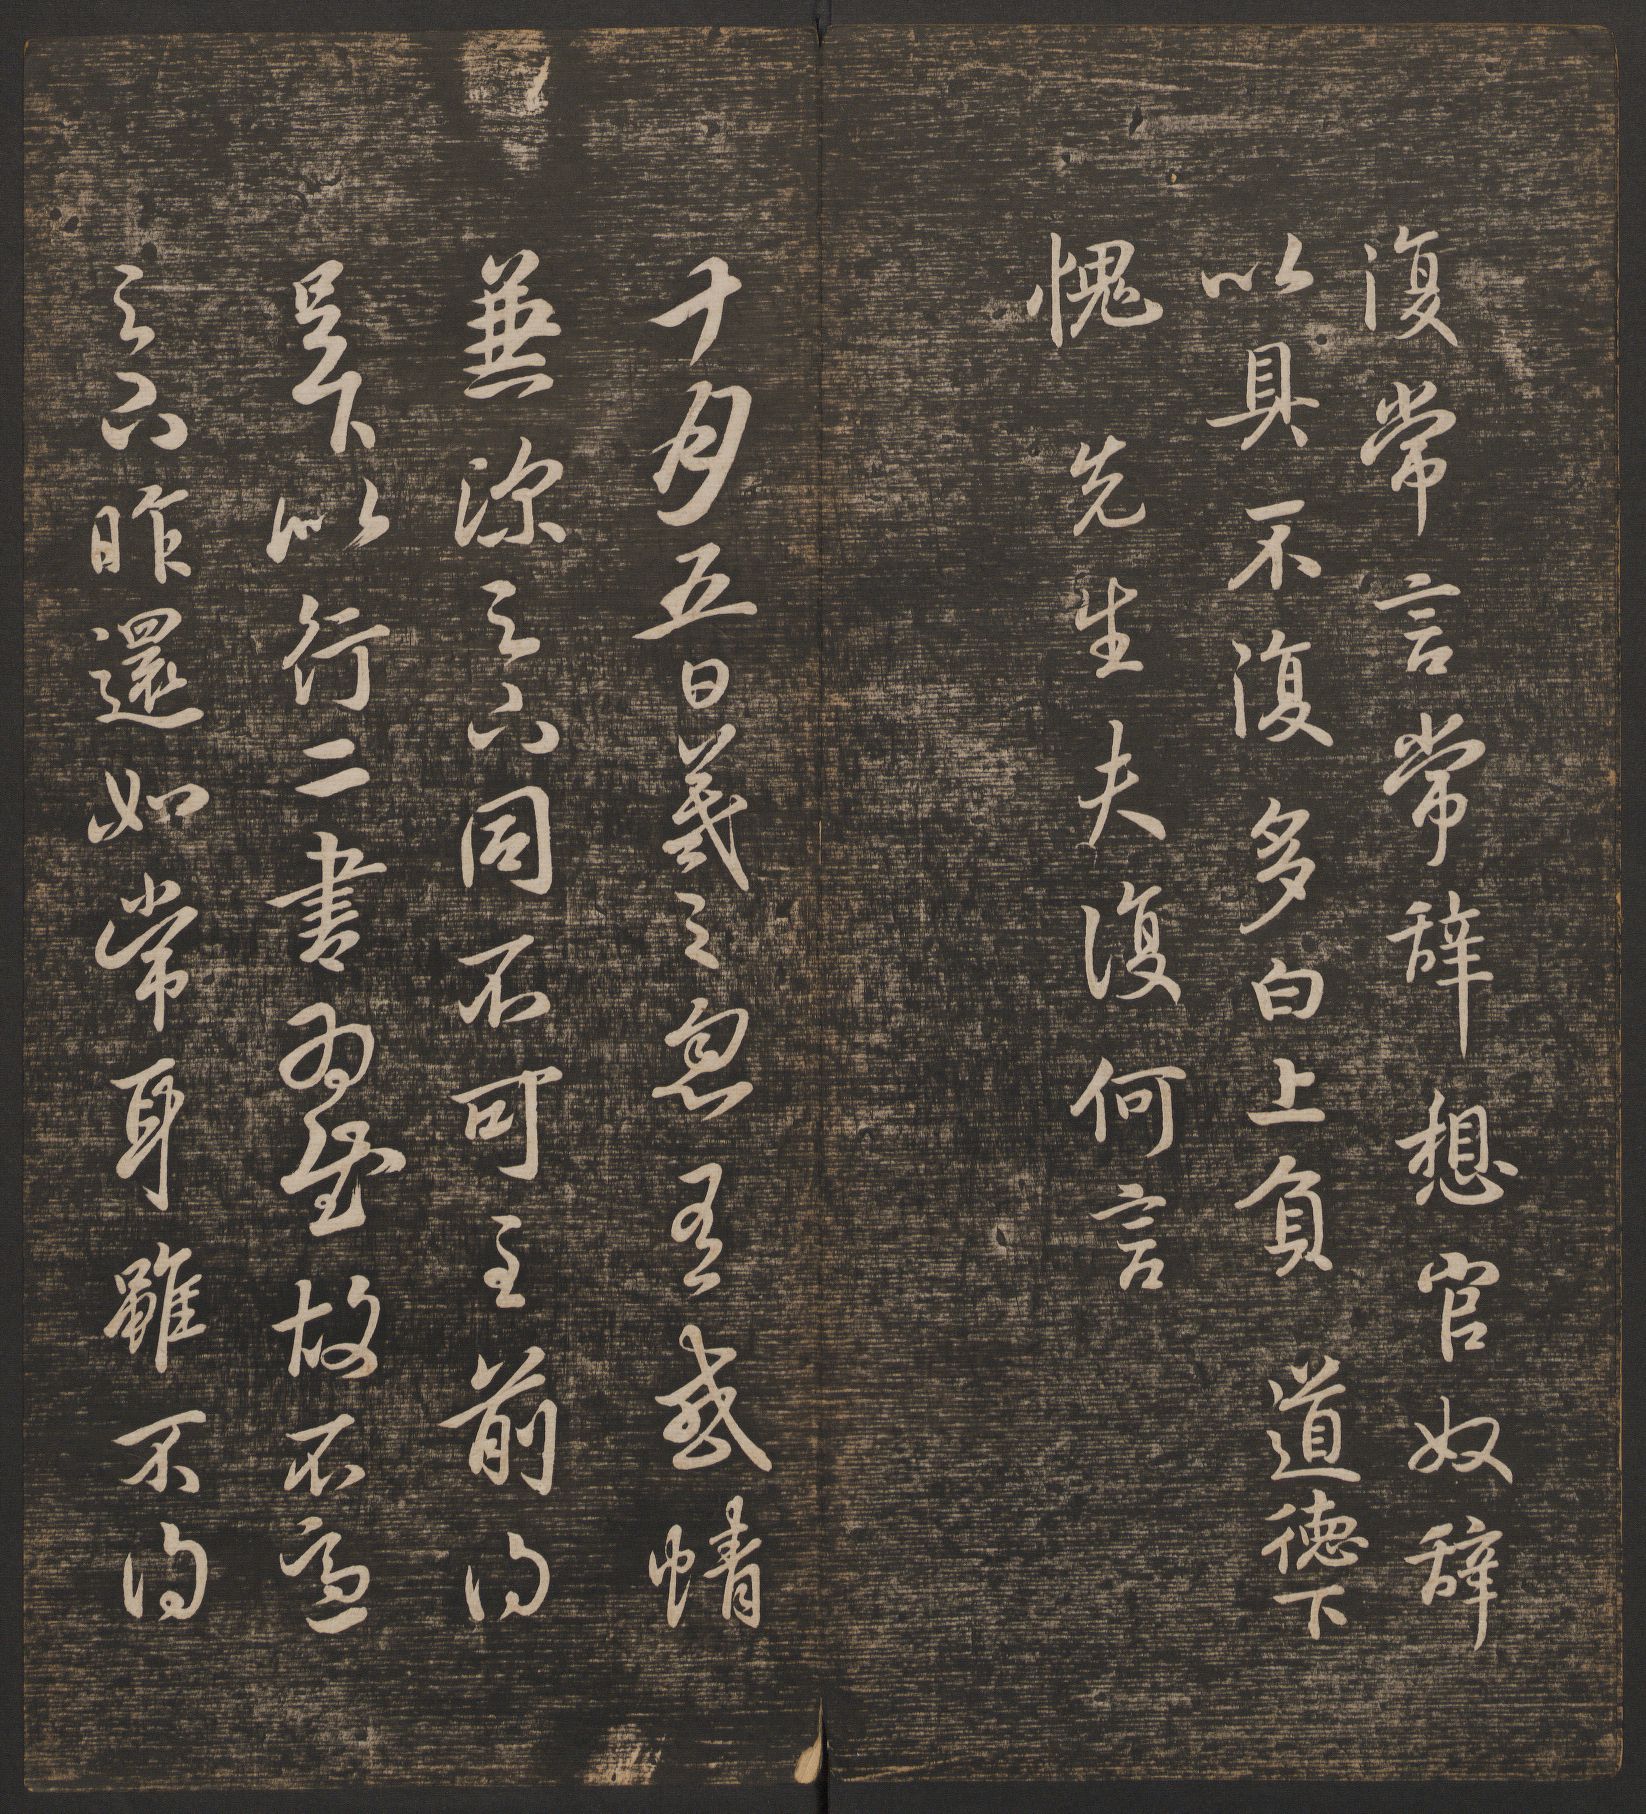 復常言常辭想官奴辭
以具不復多白上負 道德下
愧 先生夫復何言
十月五日羲之 感情
兼深 同不可 前得
足下以行二書為慰故不
昨還如常耳雖不得